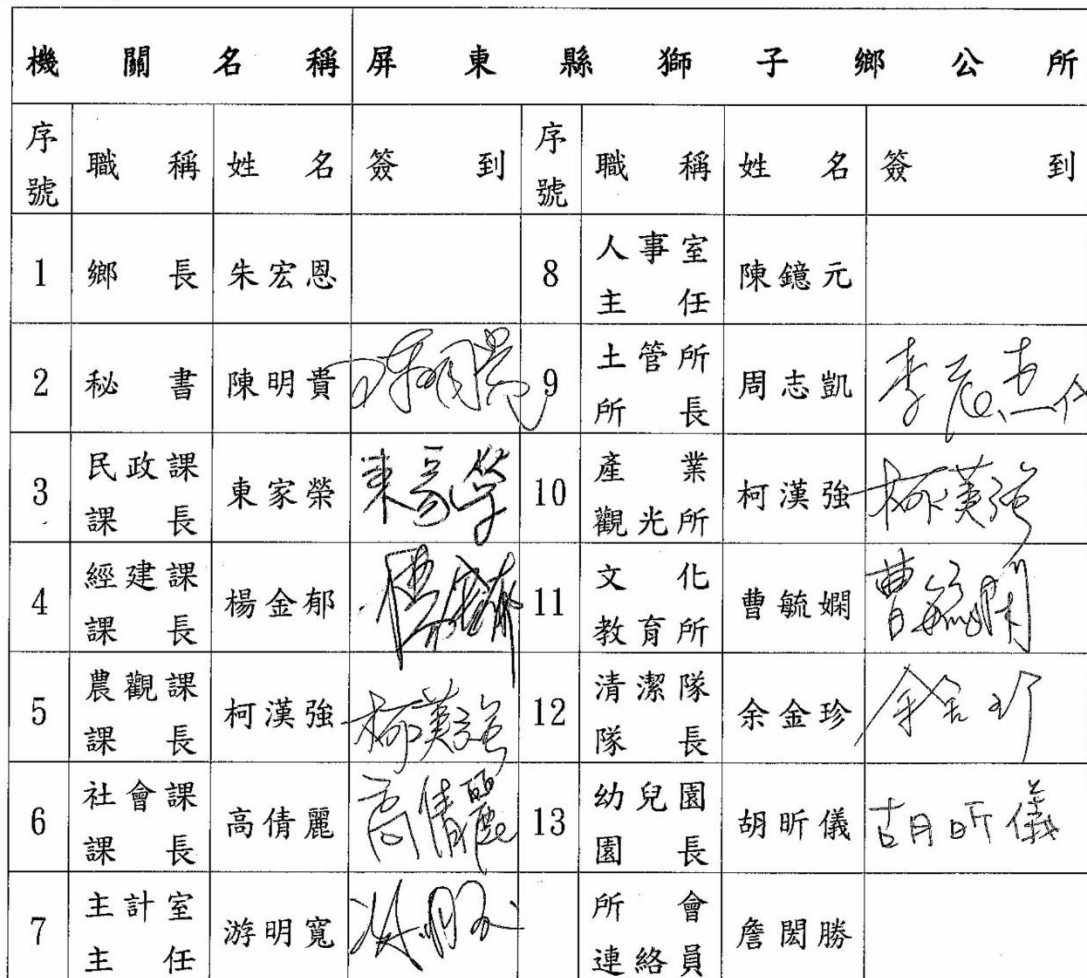 機關名稱 屏東縣獅子鄉公所
序號 職稱 姓名 簽到 序號 職稱 姓名 簽到
1 鄉長 朱宏恩 8 人事室主任 陳鐿元
2 秘書 陳明貴 9 土管所所長 周志凱 李
3 民政課課長 東家榮 東家榮 10 產業觀光所 柯漢強 柯漢強
4 經建課課長 楊金郁 11 文化教育所 曹毓嫻 曹毓嫻
5 農觀課課長 柯漢強 柯漢強 12 清潔隊隊長 余金珍 余金珍
6 社會課課長 高倩麗 高倩麗 13 幼兒園園長 胡昕儀 胡昕儀
7 主計室主任 游明寬 所會連絡員 詹閎勝